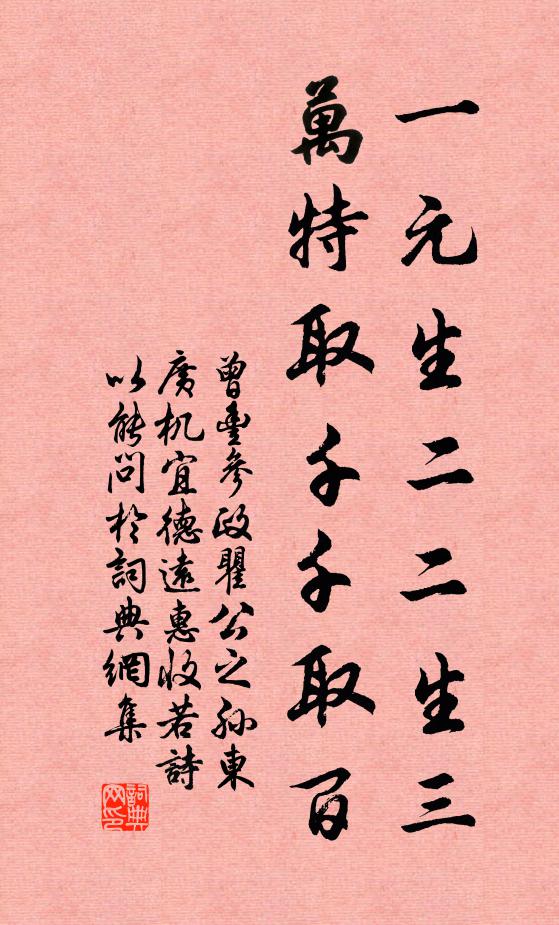 一元生二二生三
萬特取千千取百
曾豐參政瞿公之孫東
廣机宜德遠惠收若詩
以能問於詞典網集